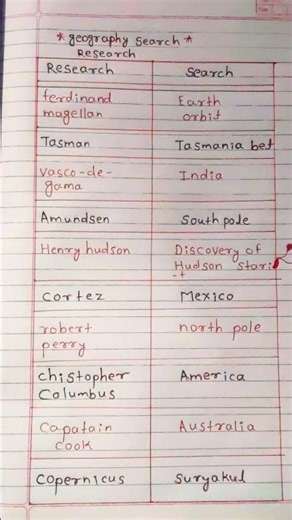 * geography search *
Research
Research Search
ferdinand Earth
magellan orbit
Tasman Tasmania bet
Vasco-de- India
gama
Amundsen South pole
Henry hudson Discovery of
Hudson stari
-t
Cortez Mexico
robert north pole
perry
Chistopher America
Columbus
Capatain Australia
cook
Copernicus Suryakul